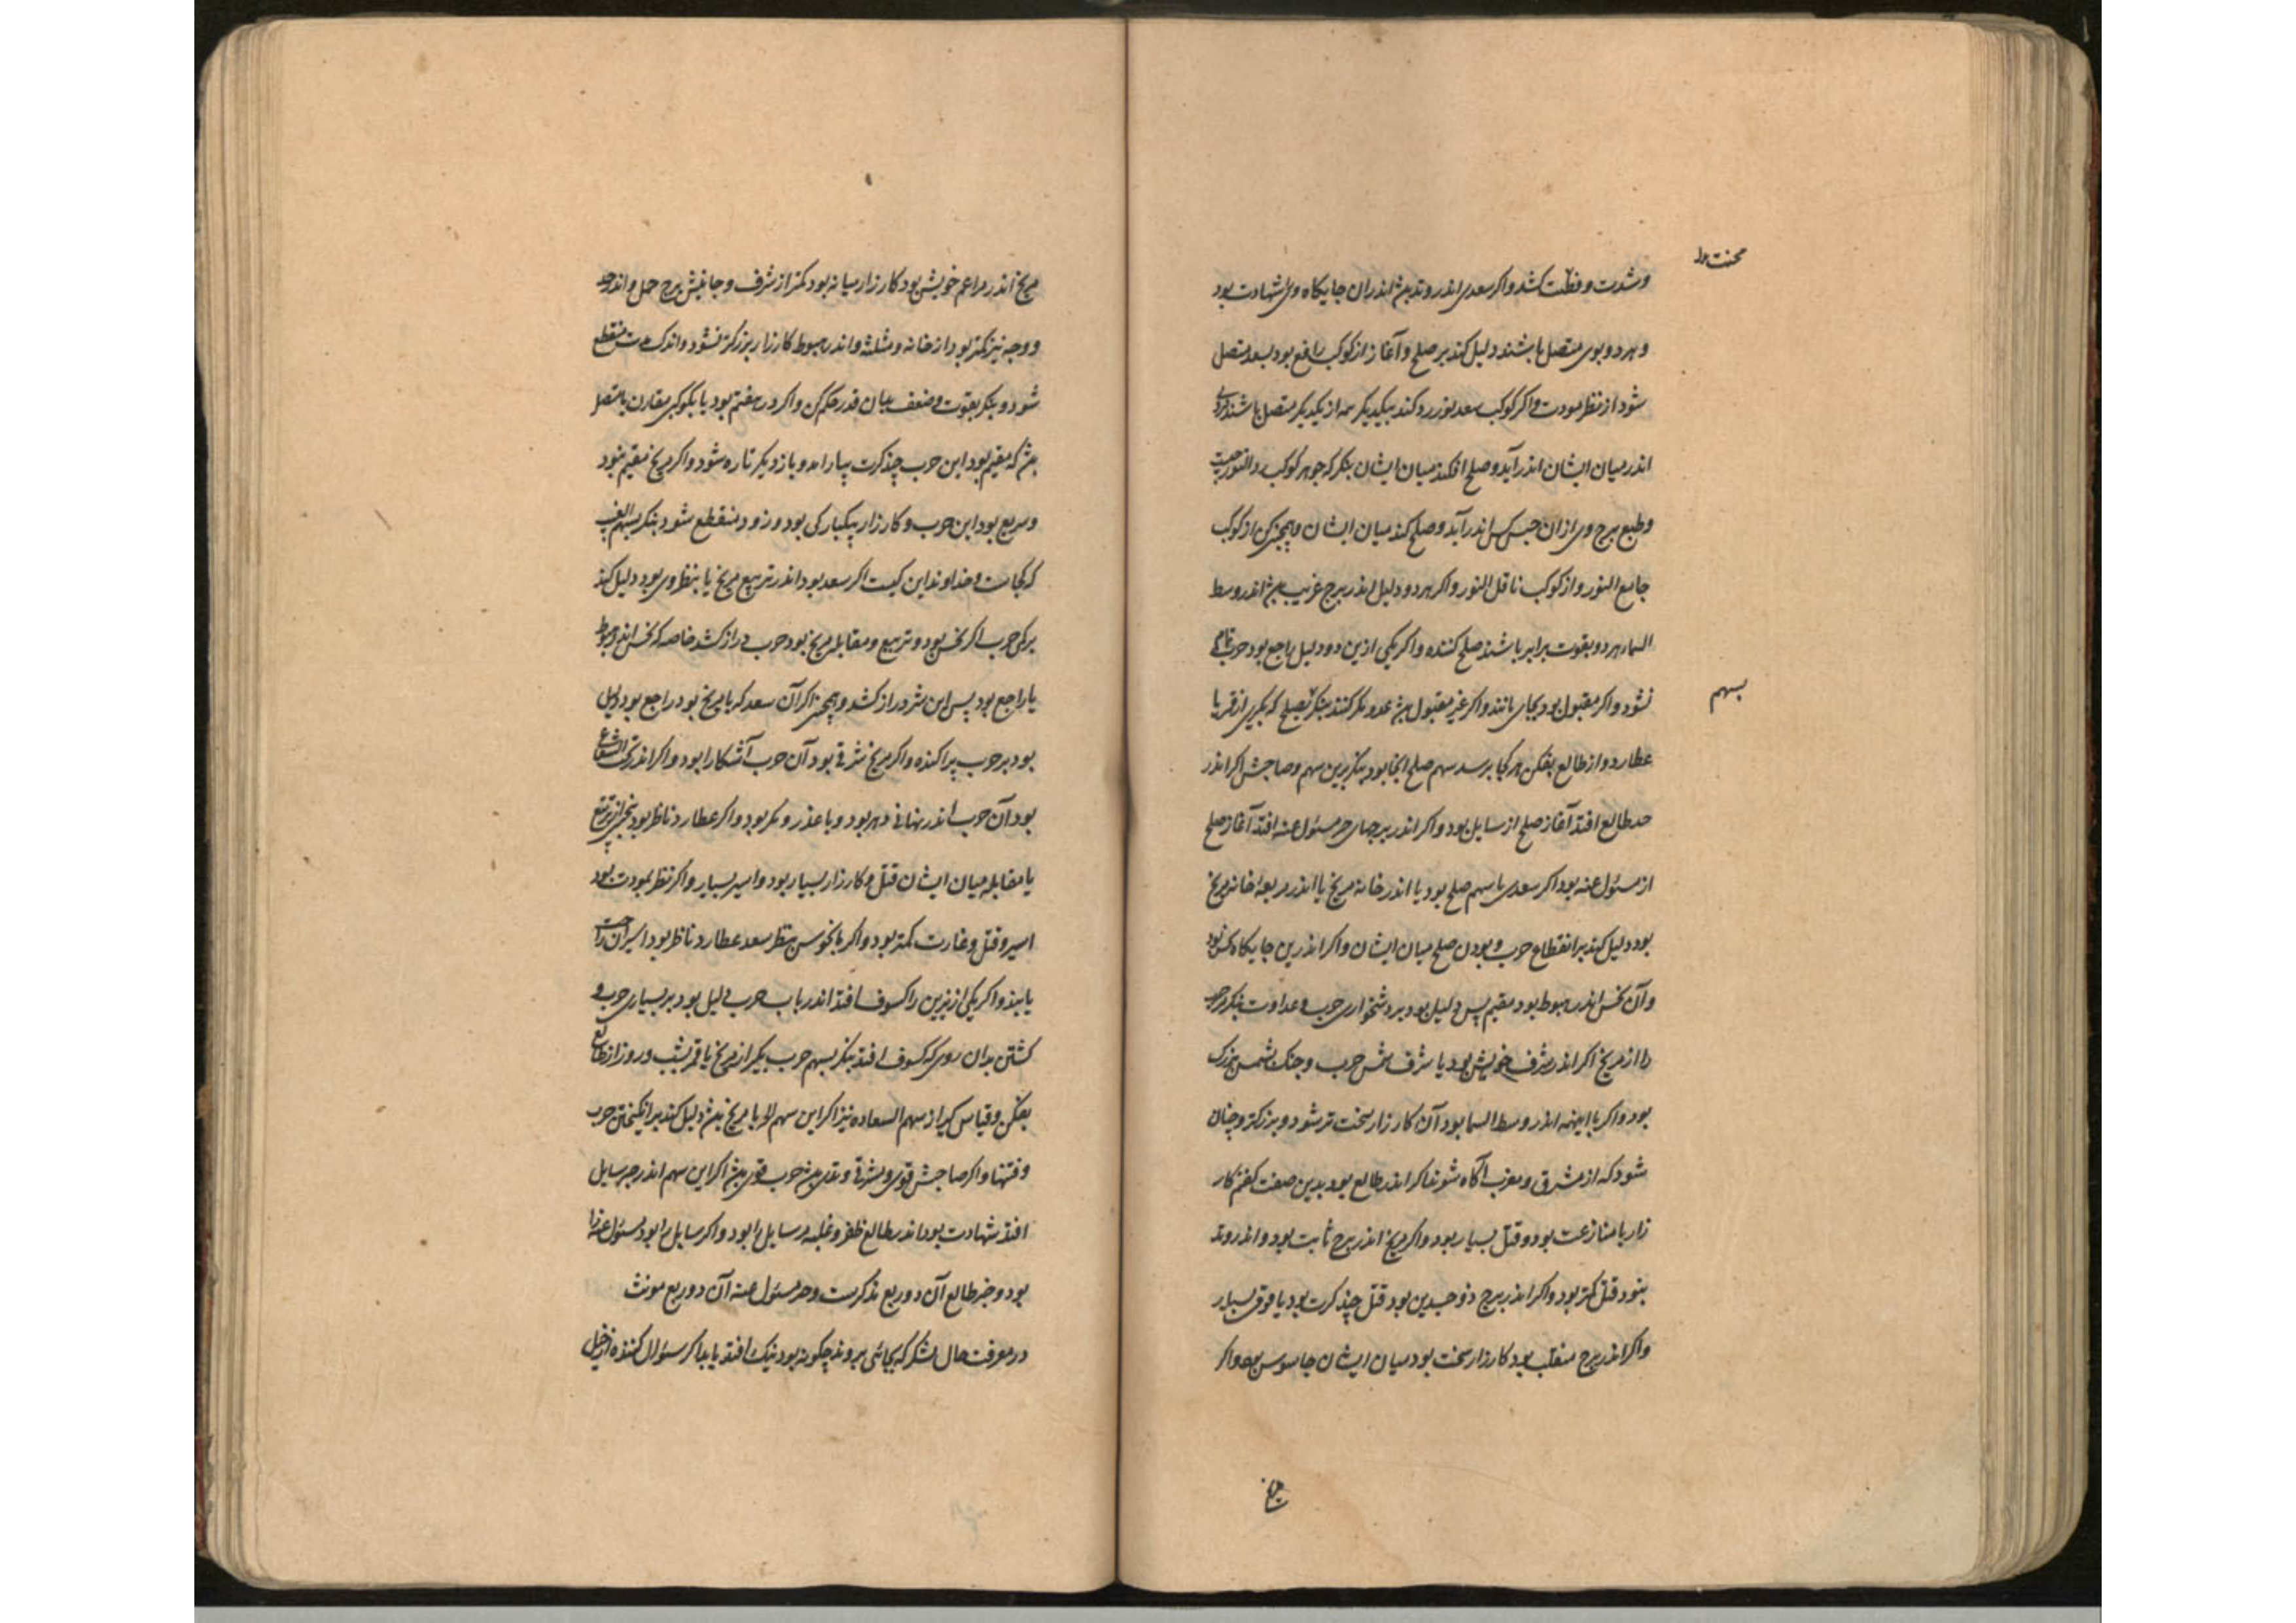 محنت
وشدت و فطنت کشد و اکر سعدی اندر وتد بیند اندران جایکاه وی شهادت بود
و هر دو بوی متصل باشند دلیل کند بر صلح و آغاز از کوکب رافع بود بسعد متصل
شود از نظر مودت و اکر کوکب سعد نور رد کند بیکدیکر نه از یکدیکر متصل باشند
اندر میان ایشان اندر آید و صلح افکند میان ایشان بنکر که جوهر کوکب
و طبع برج وی از ان جنس کس اندر آید و صلح کند میان ایشان و همچنین از کوکب
جامع النور و از کوکب ناقل النور و اکر هر دو دلیل اندر برج غریب اندر وسط
السما هر دو بقوت برابر باشند صلح کننده و اکر یکی ازین دو دلیل راجع بود حرب
نشود و اکر مقبول بود بجای مانند و اکر غیر مقبول غدر و مکر کنند بنکر بصلح که بکیری از قمر یا
بسهم
عطارد و از طالع بفکن هر کجا برسد سهم صلح انجا بود بنکر بدین سهم و صاحبش اکر اندر
حد طالع افتد آغاز صلح از سایل بود و اکر اندر برجهای مسئول عنه افتد آغاز صلح
از مسئول عنه بود اکر سعدی با سهم صلح بود یا اندر خانه مریخ یا اندر مربعه خانه مریخ
بود دلیل کند بر انقطاع حرب و بودن صلح میان ایشان و اکر اندرین جایکاه نحس بود
و آن نحس اندر هبوط بود مقیم پس دلیل بود بر دشخواری حرب و عداوت بنکر
را از مریخ اکر اندر شرف خویش بود یا شرف شمس حرب و جنک بزرک
بود و اکر با اینهمه اندر وسط السما بود آن کارزار سخت تر شود و بزرکتر و چنان
شود که از مشرق و مغرب آکاه شوند اکر اندر طالع بود بدین صفت کفتم کار
زار با منازعت بود و قتل بسیار بود و اکر مریخ اندر برج ثابت بود و اندر وتد
نبود قتل کمتر بود و اکر اندر برج ذو جسدین بود قتل چند کرت بود یا فوق بسیار
و اکر اندر برج منقلب بود کارزار سخت بود میان ایشان جاسوس بود و اکر
مریخ
مریخ اندر مراغم خویش بود کارزار میانه بود کمتر از شرف و جانبش برج حمل و اندر
و وجه نیز کمتر بود از خانه و مثلثه و اندر هبوط کارزار بزرکتر نشود و اندک منقطع
شود و بنکر بقوت و ضعف بدان قدر حکم کن و اکر در هفتم بود یا بکوکبی مقارن یا متصل
که مقیم بود این حرب چند کرت بیاراید و باز دیکر تازه شود و اکر مریخ مقیم نبود
و سریع بود این حرب و کارزار بیکبارکی بود و زود منقطع شود بنکر بسهم الغیب
که کجاست و خداوند این کیست اکر سعد بود اندر تربیع مریخ یا بنظر وی بود دلیل کند
بر کمی حرب اکر نحس بود و تربیع و مقابله مریخ بود حرب دراز کشد خاصه که نحس اندر هبوط
یا راجع بود پس این شر دراز کشد و همچنین اکر آن سعد که با مریخ بود راجع بود دلیل
بود بر حرب پراکنده و اکر مریخ شرقی بود آن حرب آشکارا بود و اکر اندر تحت الشعاع
بود آن حرب اندر نهانی دهر بود و با غدر و مکر بود و اکر عطارد ناظر بود بنحس از تربیع
یا مقابله میان ایشان قتل و کارزار بسیار بود و اسیر بسیار و اکر نظر بمودت بود
اسیر و قتل و غارت کمتر بود و اکر با نحوس بنظر سعد عطارد ناظر بود اسیران راحت
یابند و اکر یکی از نیرین را کسوف افتد اندر باب حرب دلیل بود بر بسیاری حرب و
کشتن بدان روی که کسوف افتد بنکر بسهم حرب بکیر از مریخ یا قمر بشب و روز از طالع
بفکن و قیاس کیر از سهم السعاده نیز اکر این سهم یا مریخ دلیل کند بر انکیختن حرب
و فتنها و اکر صاحبش قوی و شرقی و وتدی حرب قوی اکر این سهم اندر سایل
افتد شهادت بود اندر طالع ظفر و غلبه مر سایل را بود و اکر سایل را بود مسئول عنه را
بود و حیز طالع آن دو ربع مذکرست و مسئول عنه آن دو ربع مونث
در معرفت حال لشکر که بجائی بروند چکونه بود نیک افتد یا بد اکر سئوال کننده از خیل